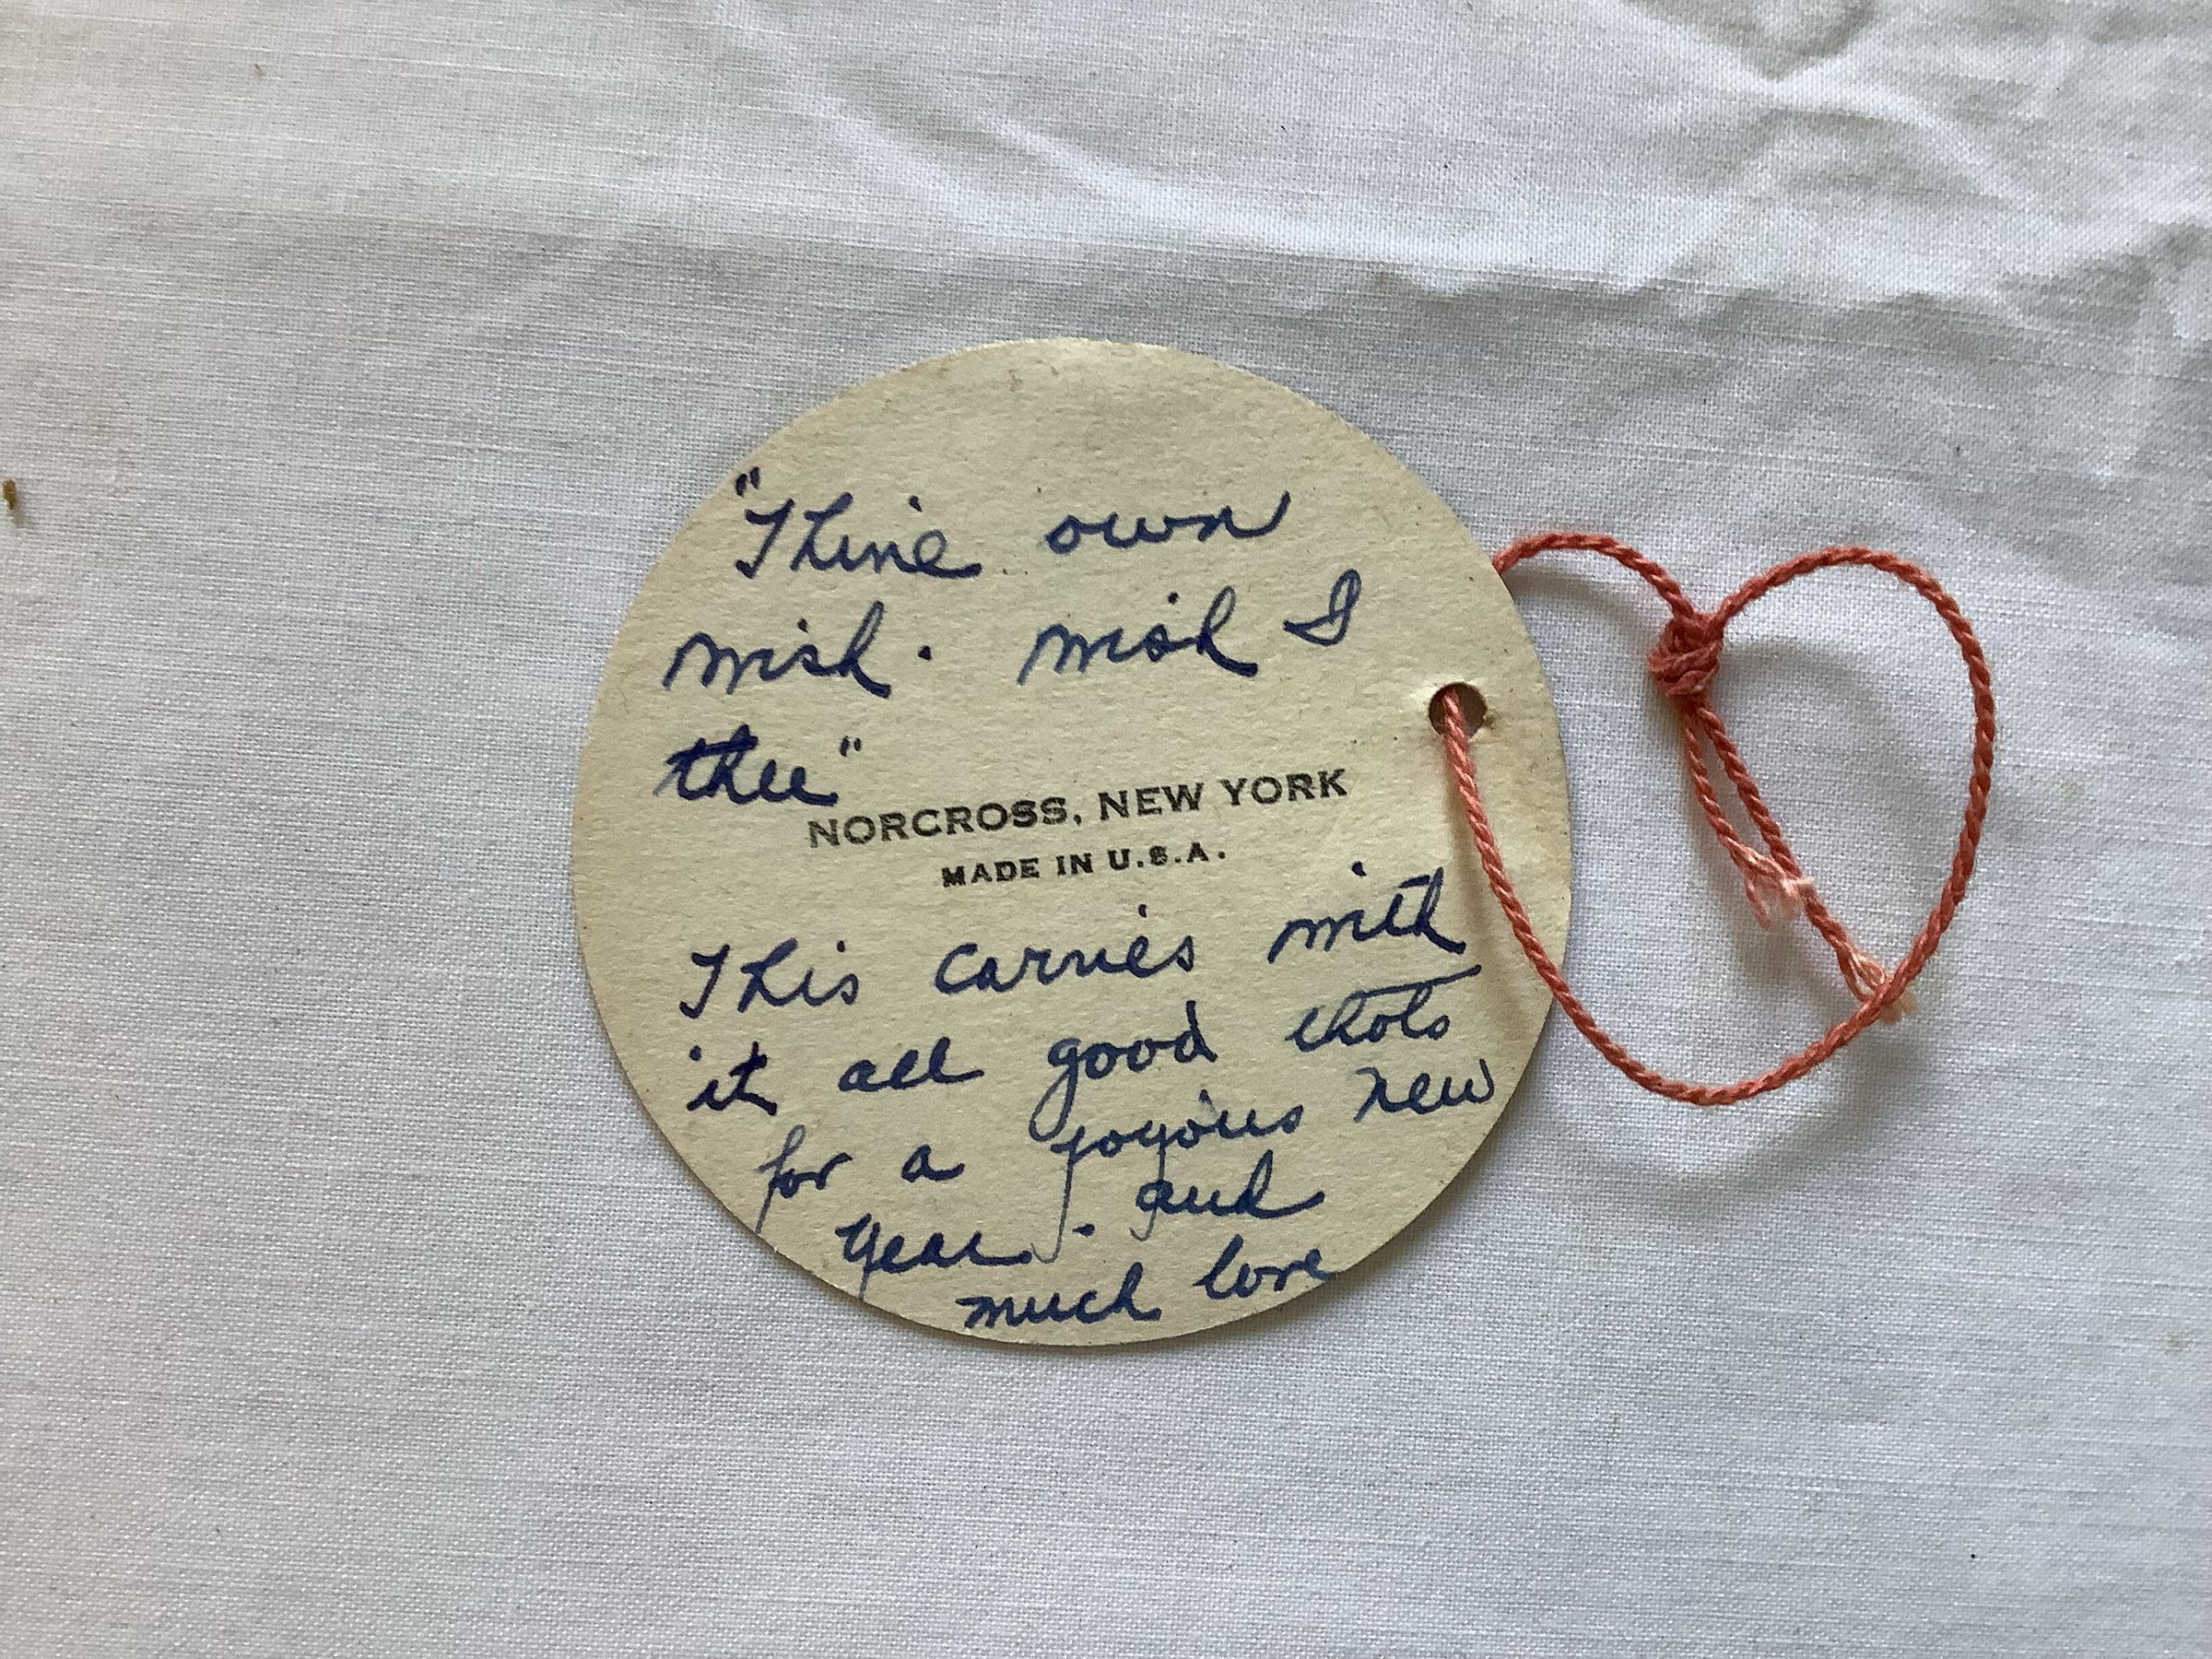 "Thine own
wish. wish I
thee"
NORCROSS, NEW YORK
MADE IN U.S.A.
This carries with
it all good thots
for a joyous new
year. and
much love